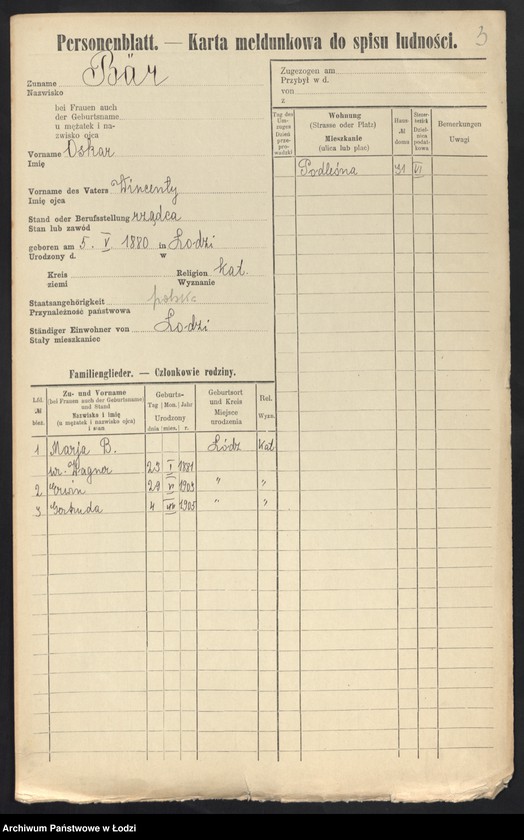 3
Personenblatt. — Karta meldunkowa do spisu ludności.
Zuname Bär
Nazwisko
bei Frauen auch
der Geburtsname
u mężatek i na-
zwisko ojca
Vorname Oskar
Imię
Vorname des Vaters Wincenty
Imię ojca
Stand oder Berufsstellung rządca
Stan lub zawód
geboren am 5. V 1880 in Łodzi
Urodzony d. w
Kreis Religion Kat.
ziemi Wyznanie
Staatsangehörigkeit polsk.
Przynależność państwowa
Ständiger Einwohner von Łodzi
Stały mieszkaniec
Zugezogen am
Przybył w d.
von
z
Tag des Um-zuges Dzień prze-pro-wadzki
Wohnung (Strasse oder Platz) Mieszkanie (ulica lub plac)
Haus- № domu
Bemerkungen Uwagi
Podleśna 31 VI
Familienglieder. — Członkowie rodziny.
Lfd. № bież.
Zu- und Vorname (bei Frauen auch der Geburtsname) und Stand Nazwisko i imię (u mężatek i nazwisko ojca) i stan
Geburts- Tag Mon. Jahr Urodzony dnia mies. r.
Geburtsort und Kreis Miejsce urodzenia
Rel. Wyzn.
1 Marja B. Łódź Kat
ur. Wagner 23 I 1881
2 Erwin 29 VI 1903 " "
3 Gertruda 4 VII 1905 " "
Archiwum Państwowe w Łodzi